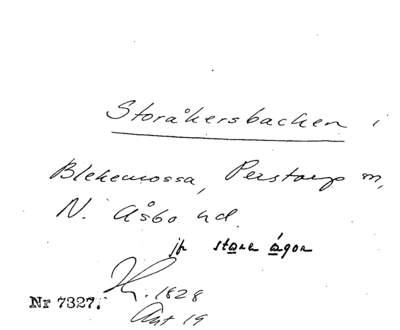 Storåkersbacken i
Blekemossa, Perstorp sn,
N. Åsbo hd.
jfr stare ågor
1828
Nr 7327.
Akt 19